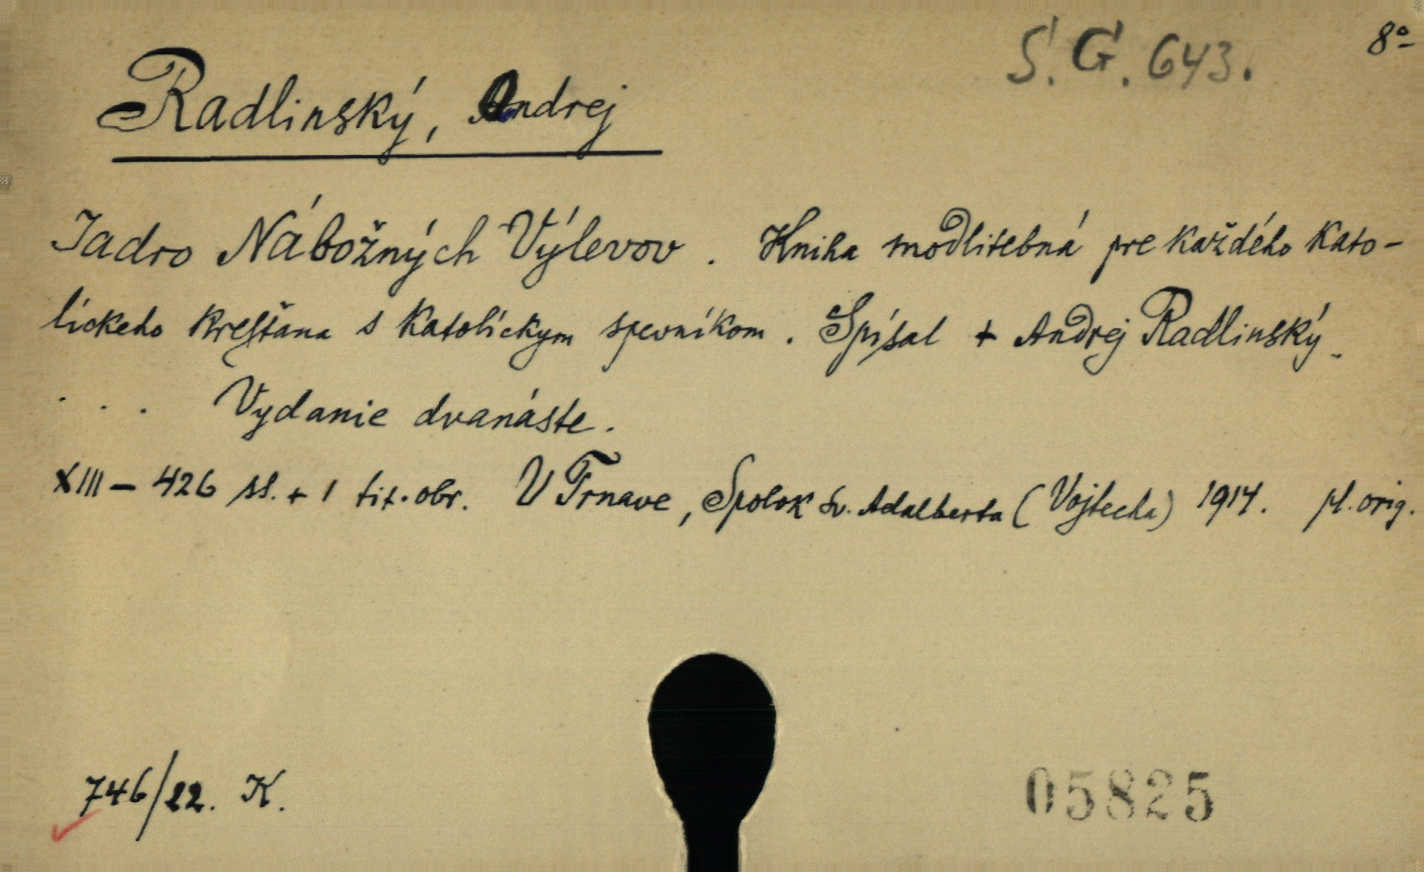 S. G. 643.
8°
Radlinský, Andrej
Jadro Nábožných Výlevov. Kniha modlitebná pre každého kato-
líckeho kresťana s katolíckym spevníkom. Spísal + Andrej Radlinský.
. . . Vydanie dvanáste.
XIII — 426 ss. + 1 tit. obr. V Trnave, Spolok sv. Adalberta (Vojtecha) 1914. pl. orig.
746/22. K.
05825